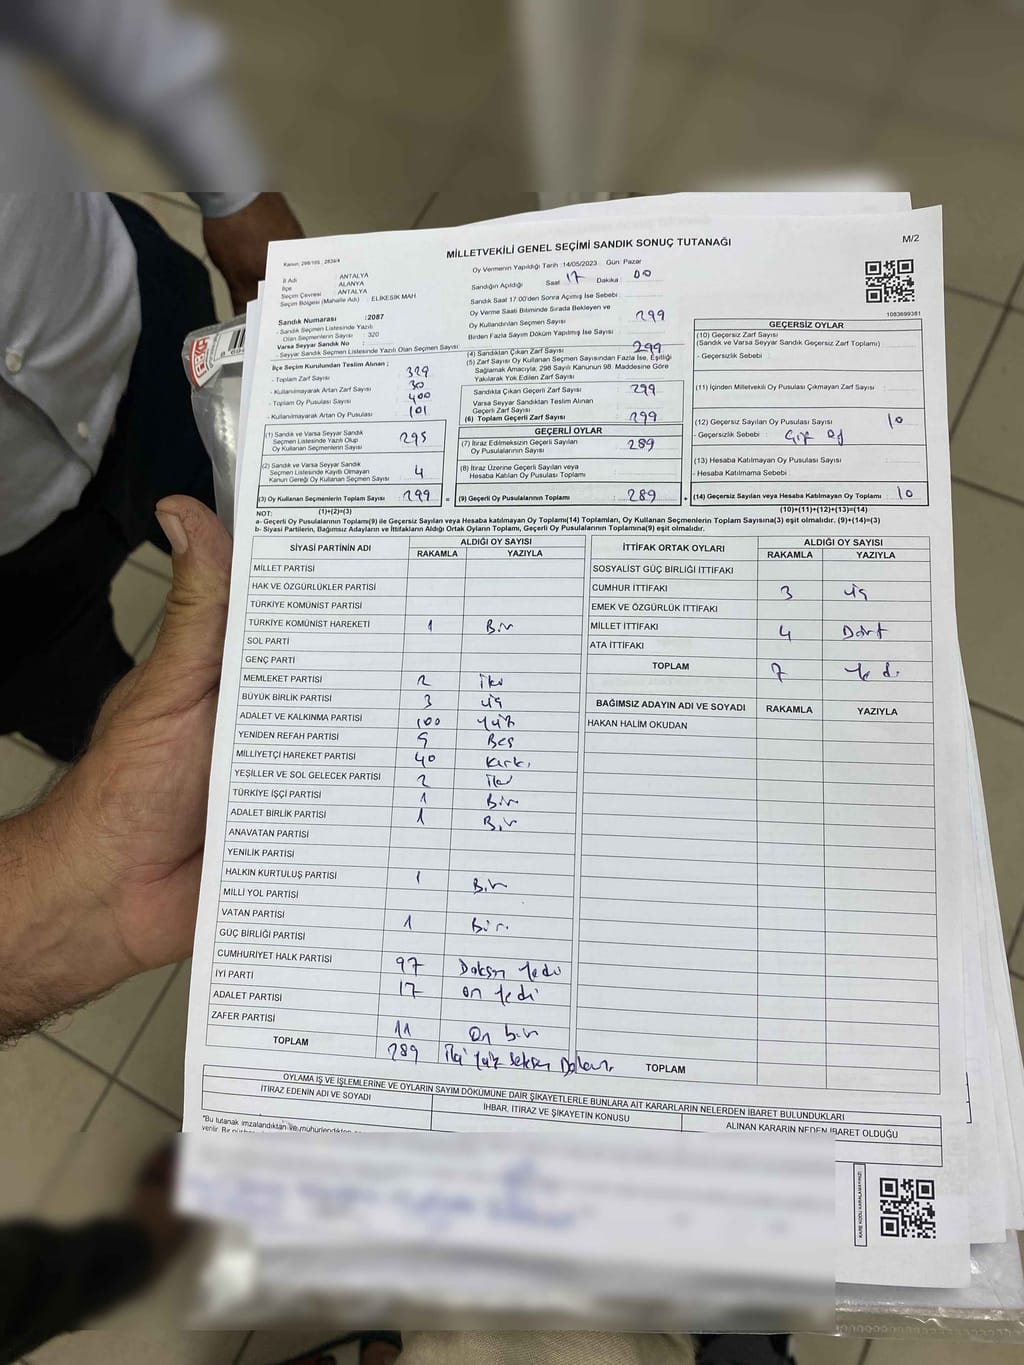 MİLLETVEKİLİ GENEL SEÇİMİ SANDIK SONUÇ TUTANAĞI
M/2
İl Adı : ANTALYA
İlçe : ALANYA
Seçim Çevresi : ANTALYA
Seçim Bölgesi (Mahalle Adı) : ELİKESİK MAH
Sandık Numarası : 2087
- Sandık Seçmen Listesinde Yazılı
Olan Seçmenlerin Sayısı : 320
Varsa Seyyar Sandık No :
- Seyyar Sandık Seçmen Listesinde Yazılı Olan Seçmen Sayısı:
Oy Vermenin Yapıldığı Tarih : 14/05/2023 Gün: Pazar
Sandığın Açıldığı Saat 17 Dakika 00
Sandık Saat 17:00'den Sonra Açılmış İse Sebebi :
Oy Verme Saati Bitiminde Sırada Bekleyen ve
Oy Kullandırılan Seçmen Sayısı : 299
Birden Fazla Sayım Döküm Yapılmış İse Sayısı :
1083699381
İlçe Seçim Kurulundan Teslim Alınan ;
- Toplam Zarf Sayısı : 329
- Kullanılmayarak Artan Zarf Sayısı : 30
- Toplam Oy Pusulası Sayısı : 400
- Kullanılmayarak Artan Oy Pusulası : 101
(1) Sandık ve Varsa Seyyar Sandık
Seçmen Listesinde Yazılı Olup
Oy Kullanan Seçmen Sayısı : 295
(2) Sandık ve Varsa Seyyar Sandık
Seçmen Listesinde Kayıtlı Olmayan
Kanun Gereği Oy Kullanan Seçmen Sayısı : 4
(3) Oy Kullanan Seçmenlerin Toplam Sayısı : 299
(1)+(2)=(3)
(4) Sandıktan Çıkan Zarf Sayısı : 299
(5) Zarf Sayısı Oy Kullanan Seçmen Sayısından Fazla İse, Eşitliği
Sağlamak Amacıyla; 298 Sayılı Kanunun 98. Maddesine Göre
Yakılarak Yok Edilen Zarf Sayısı :
Sandıkta Çıkan Geçerli Zarf Sayısı : 299
Varsa Seyyar Sandıktan Teslim Alınan
Geçerli Zarf Sayısı :
(6) Toplam Geçerli Zarf Sayısı : 299
GEÇERLİ OYLAR
(7) İtiraz Edilmeksizin Geçerli Sayılan
Oy Pusulalarının Sayısı : 289
(8) İtiraz Üzerine Geçerli Sayılan veya
Hesaba Katılan Oy Pusulası Toplamı :
= (9) Geçerli Oy Pusulalarının Toplamı : 289
GEÇERSİZ OYLAR
(10) Geçersiz Zarf Sayısı
(Sandık ve Varsa Seyyar Sandık Geçersiz Zarf Toplamı) :
- Geçersizlik Sebebi :
(11) İçinden Milletvekili Oy Pusulası Çıkmayan Zarf Sayısı :
(12) Geçersiz Sayılan Oy Pusulası Sayısı : 10
- Geçersizlik Sebebi :
(13) Hesaba Katılmayan Oy Pusulası Sayısı :
- Hesaba Katılmama Sebebi :
+ (14) Geçersiz Sayılan veya Hesaba Katılmayan Oy Toplamı : 10
(10)+(11)+(12)+(13)=(14)
NOT:
a- Geçerli Oy Pusulalarının Toplamı(9) ile Geçersiz Sayılan veya Hesaba katılmayan Oy Toplamı(14) Toplamları, Oy Kullanan Seçmenlerin Toplam Sayısına(3) eşit olmalıdır. (9)+(14)=(3)
b- Siyasi Partilerin, Bağımsız Adayların ve İttifakların Aldığı Ortak Oyların Toplamı, Geçerli Oy Pusulalarının Toplamına(9) eşit olmalıdır.
SİYASİ PARTİNİN ADI ALDIĞI OY SAYISI
RAKAMLA YAZIYLA
MİLLET PARTİSİ
HAK VE ÖZGÜRLÜKLER PARTİSİ
TÜRKİYE KOMÜNİST PARTİSİ
TÜRKİYE KOMÜNİST HAREKETİ 1 Bir
SOL PARTİ
GENÇ PARTİ
MEMLEKET PARTİSİ 2 iki
BÜYÜK BİRLİK PARTİSİ 3 üç
ADALET VE KALKINMA PARTİSİ 100 yüz
YENİDEN REFAH PARTİSİ 5 Beş
MİLLİYETÇİ HAREKET PARTİSİ 40 Kırk
YEŞİLLER VE SOL GELECEK PARTİSİ 2 iki
TÜRKİYE İŞÇİ PARTİSİ 1 Bir
ADALET BİRLİK PARTİSİ 1 Bir
ANAVATAN PARTİSİ
YENİLİK PARTİSİ
HALKIN KURTULUŞ PARTİSİ 1 Bir
MİLLİ YOL PARTİSİ
VATAN PARTİSİ 1 Bir.
GÜÇ BİRLİĞİ PARTİSİ
CUMHURİYET HALK PARTİSİ 97 Doksan Yedi
İYİ PARTİ 17 on Yedi
ADALET PARTİSİ
ZAFER PARTİSİ 11 On bir
TOPLAM 289 İki Yüz Seksen Dokuz
İTTİFAK ORTAK OYLARI ALDIĞI OY SAYISI
RAKAMLA YAZIYLA
SOSYALİST GÜÇ BİRLİĞİ İTTİFAKI
CUMHUR İTTİFAKI 3 üç
EMEK VE ÖZGÜRLÜK İTTİFAKI
MİLLET İTTİFAKI 4 Dört
ATA İTTİFAKI
TOPLAM 7 Yedi
BAĞIMSIZ ADAYIN ADI VE SOYADI RAKAMLA YAZIYLA
HAKAN HALİM OKUDAN
TOPLAM
OYLAMA İŞ VE İŞLEMLERİNE VE OYLARIN SAYIM DÖKÜMÜNE DAİR ŞİKAYETLERLE BUNLARA AİT KARARLARIN NELERDEN İBARET BULUNDUKLARI
İTİRAZ EDENİN ADI VE SOYADI İHBAR, İTİRAZ VE ŞİKAYETİN KONUSU ALINAN KARARIN NEDEN İBARET OLDUĞU
"Bu tutanak imzalandıktan ve mühürlendikten
KARE KODU KARALAMAYINIZ!